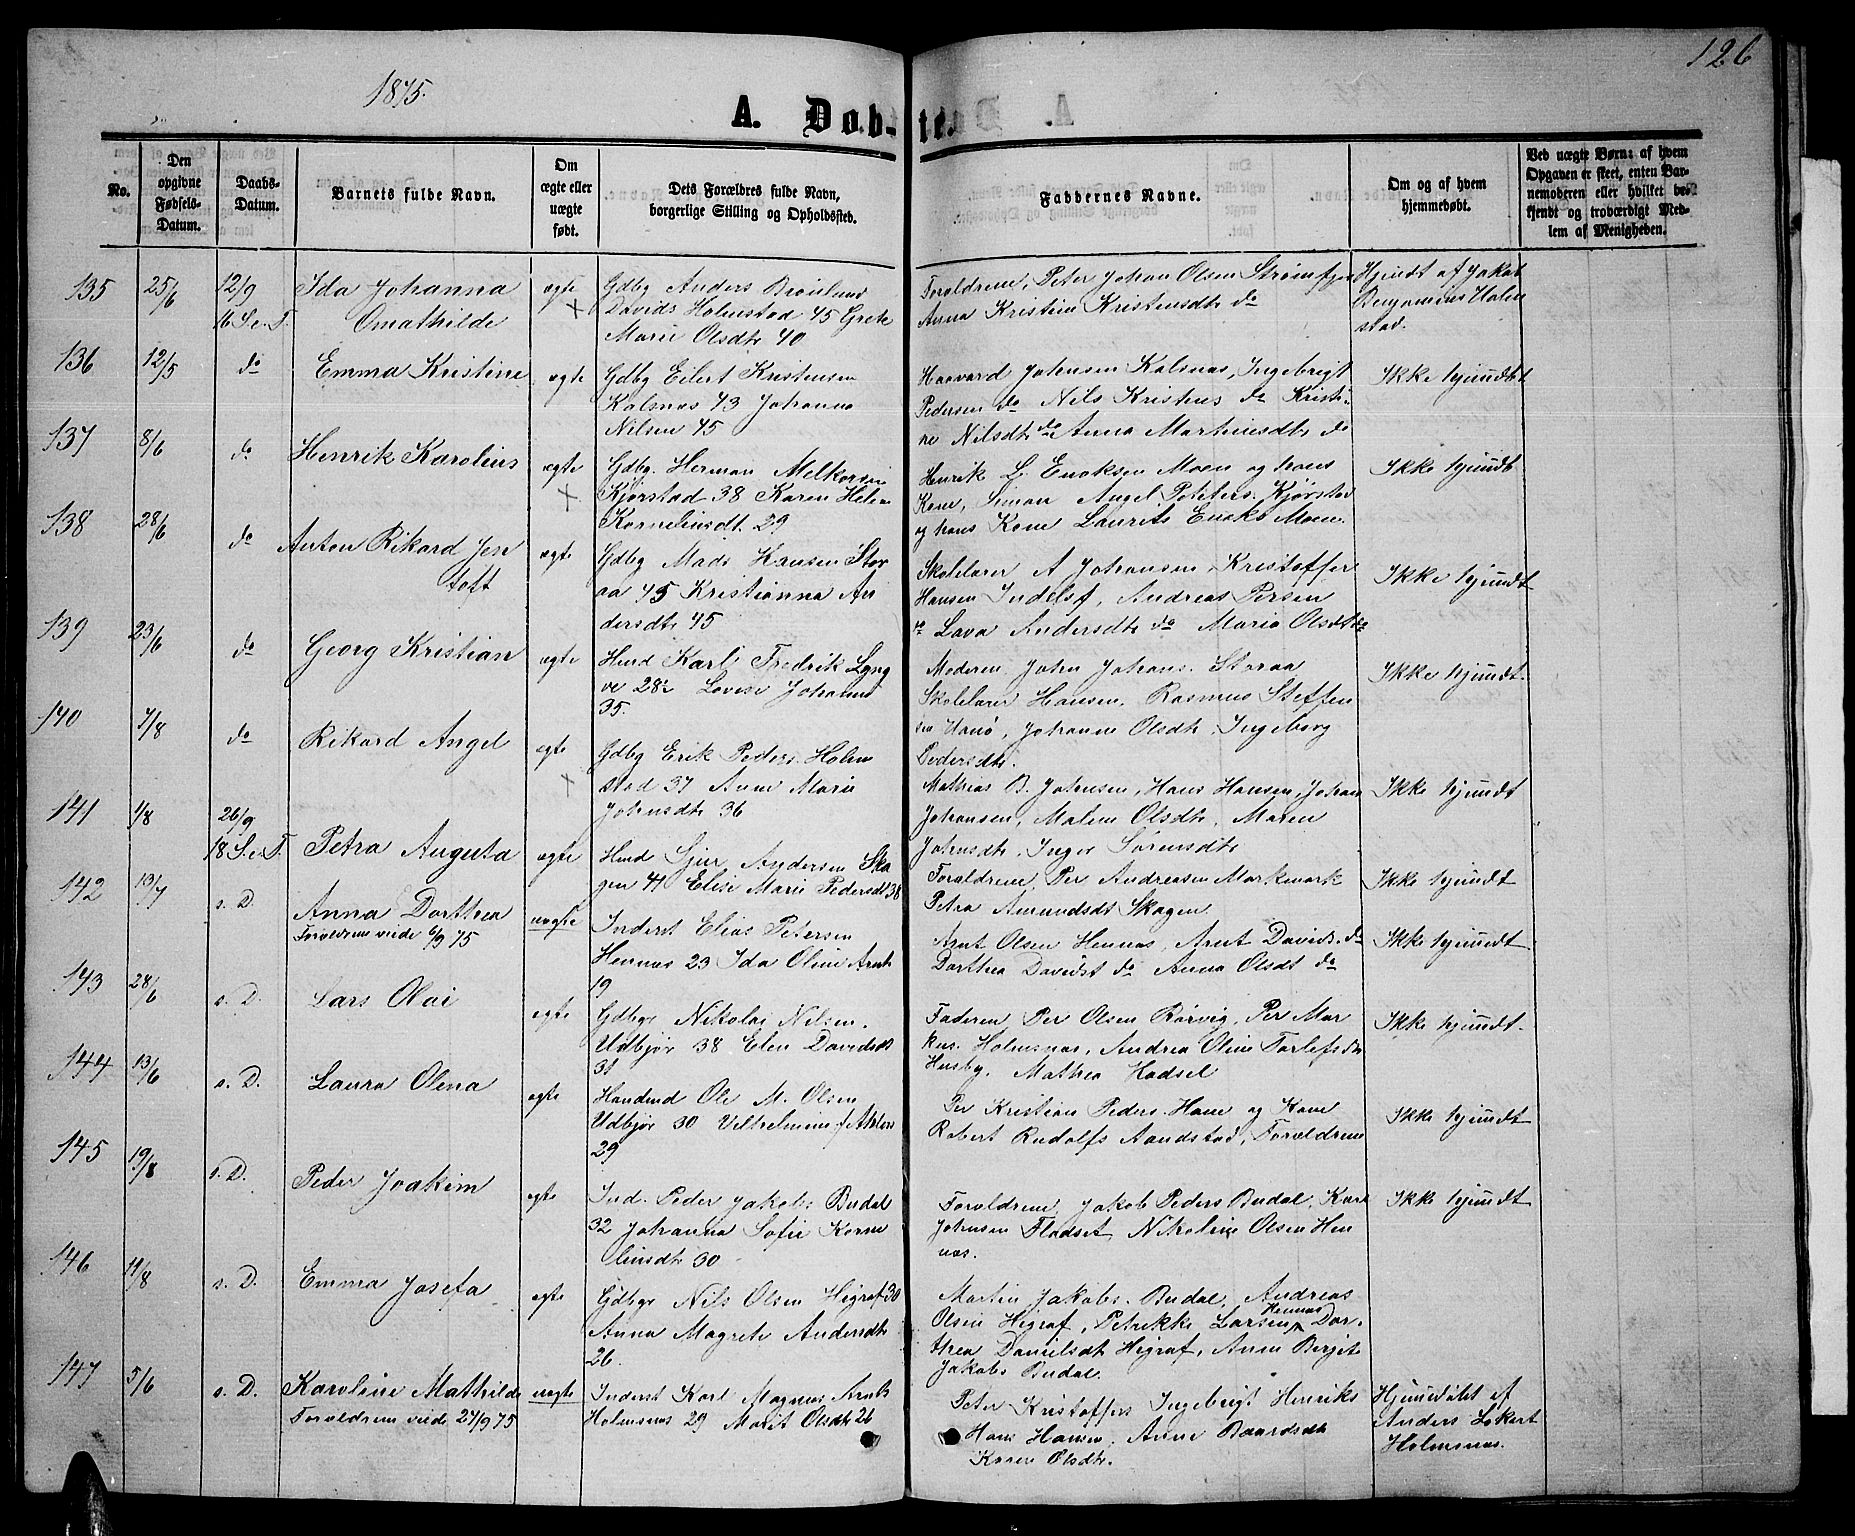 126
1875.
A. Døb-te.
No.
Den opgivne Fødsels-Datum.
Daabs-Datum.
Barnets fulde Navn.
Om ægte eller uægte født.
Dets Forældres fulde Navn, borgerlige Stilling og Opholdssted.
Faddernes Navne.
Om og af hvem hjemmedøbt.
Ved uægte Børn: af hvem Opgaven er skeet, enten Barnemoderen eller hvilket bekjendt og troværdigt Medlem af Menigheden.
135 25/6 12/9 Ida Johanna ægte Gdbg Anders
16 S. e. T. Omathilde × Davids Holmstad 45 Grete
Marie Olsdtr 40
Forældrene, Peter Johan Olsen
Anna Kristin Kristensdtr do
Hjemdt af Jakob
Benjamins Holm
stad.
136 12/5 do Emma Kristine ægte Gdbg Eilert Kristensen
Kalsnas 43 Johanna
Nilsen 45
Haavard Johnsen Kalsnas, Ingebrigt
Pedersen do Nils Kristens do Kristi-
ne Nilsdtr do Anna Martinsdtr do
Ikke hjemdt
137 8/6 do Henrik Karolius ægte Gdbg. Herman Melkorsen
× Kjørstad 38 Karen Helen
Kornelinsdt. 29
Henrik L. Enoksen Moen og hans
Kone, Simon Angel Peters. Kjørstad
og hans Kone Laurits Enoks Moen.
Ikke hjemdt
138 28/6 do Anton Rikard Jen ægte Gdbg Mads Hansen Stor
toft aa 45 Kristianna An
dersdtr 45
Skolelærer A Johansen Kristoffer
Hansen Indelsf, Andreas Persen
do Lava Andersdtr do Maria Olsdtr do
Ikke hjemdt
139 23/6 do Georg Kristian ægte Hmd Karl Fredrik Lyng
ve 28 Lovise Johanne
35.
Moderen John Johans. Storaa
Skolelærer Hansen. Rasmus Steffen
sen Hanø, Johanne Olsdtr. Ingeborg
Pedersdtr.
Ikke hjemdt.
140 7/8 do Rikard Angel ægte Gdbg Erik Peders. Holm
× stad 37 Anne Marie
Johnsdtr 36
Mathias B. Johnsen, Hans Hansen, Johan
Johansen, Malene Olsdtr. Maren
Johnsdtr. Inger Sørensdtr
Ikke hjemdt
141 1/8 26/9
18 S. e. T. Petra Augusta ægte Hmd Sjur Andersen Ska
gen 41 Elise Marie Pedersdt 38
Forældrene, Per Andreasen Markmark
Petra Amundsdt Skagen.
Ikke hjemdt
142 13/7 s. D. Anna Dorthea uægte Inderst Elias Petersen
Forældrene viede 6/9 75 Hennas 23 Ida Oline Arnts
19
Arnt Olsen Hennas, Arnt Davids. do
Dorthea Davidst do Anna Olsdt do
Ikke hjemdt.
143 28/6 s. D. Lars Olai ægte Gdbgr Nikolai Nilsen.
Udbjør 38 Elen Davidsdt
31
Faderen, Per Olsen Rørvig, Per Mar
kus. Holmsnas, Andrea Oline Torlefsdtr
Husby. Mathea Hadsel
Ikke hjemdt.
144 13/6 s. D. Laura Olena ægte Ole M. Olsen
Udbjør 30
29
Per Kristian Peders. Hane og Kone
Robert Rudolfs Aandstad, Forældrene
Ikke hjemdt
145 19/8 s. D. Peder Joakim ægte Ind. Peder Jakobs Budal
32 Johanna Sofie Korne
liusdtr 30
Forældrene, Jakob Peders Budal, Karl
Johnsen Fladset Nikoline Olsen Hen
nas.
Ikke hjemdt
146 14/8 s. D. Emma Josefa ægte Gdbgr Nils Olsen Higraf 30
Anna Magrete Andersdtr
26.
Martin Jakobs. Budal, Andreas
Olsen Higraf, Petrikke Larsen Hennas Dor-
thea Danielsdt Higraf, Anne Bergite
Jakobs Budal.
147 5/6 s. D. Karoline Mathilde uægte Inderst Karl Magnus Arnts
Forældrene viede 27/9 75 Holmsnas 29 Marit Olsdtr 26
Peter Kristoffers Ingebrigt Henriks
Hans Hansen, Anne Baardsdtr
Karen Olsdtr.
Hjemmedøbt af
Anders Eckert
Holmsnas.